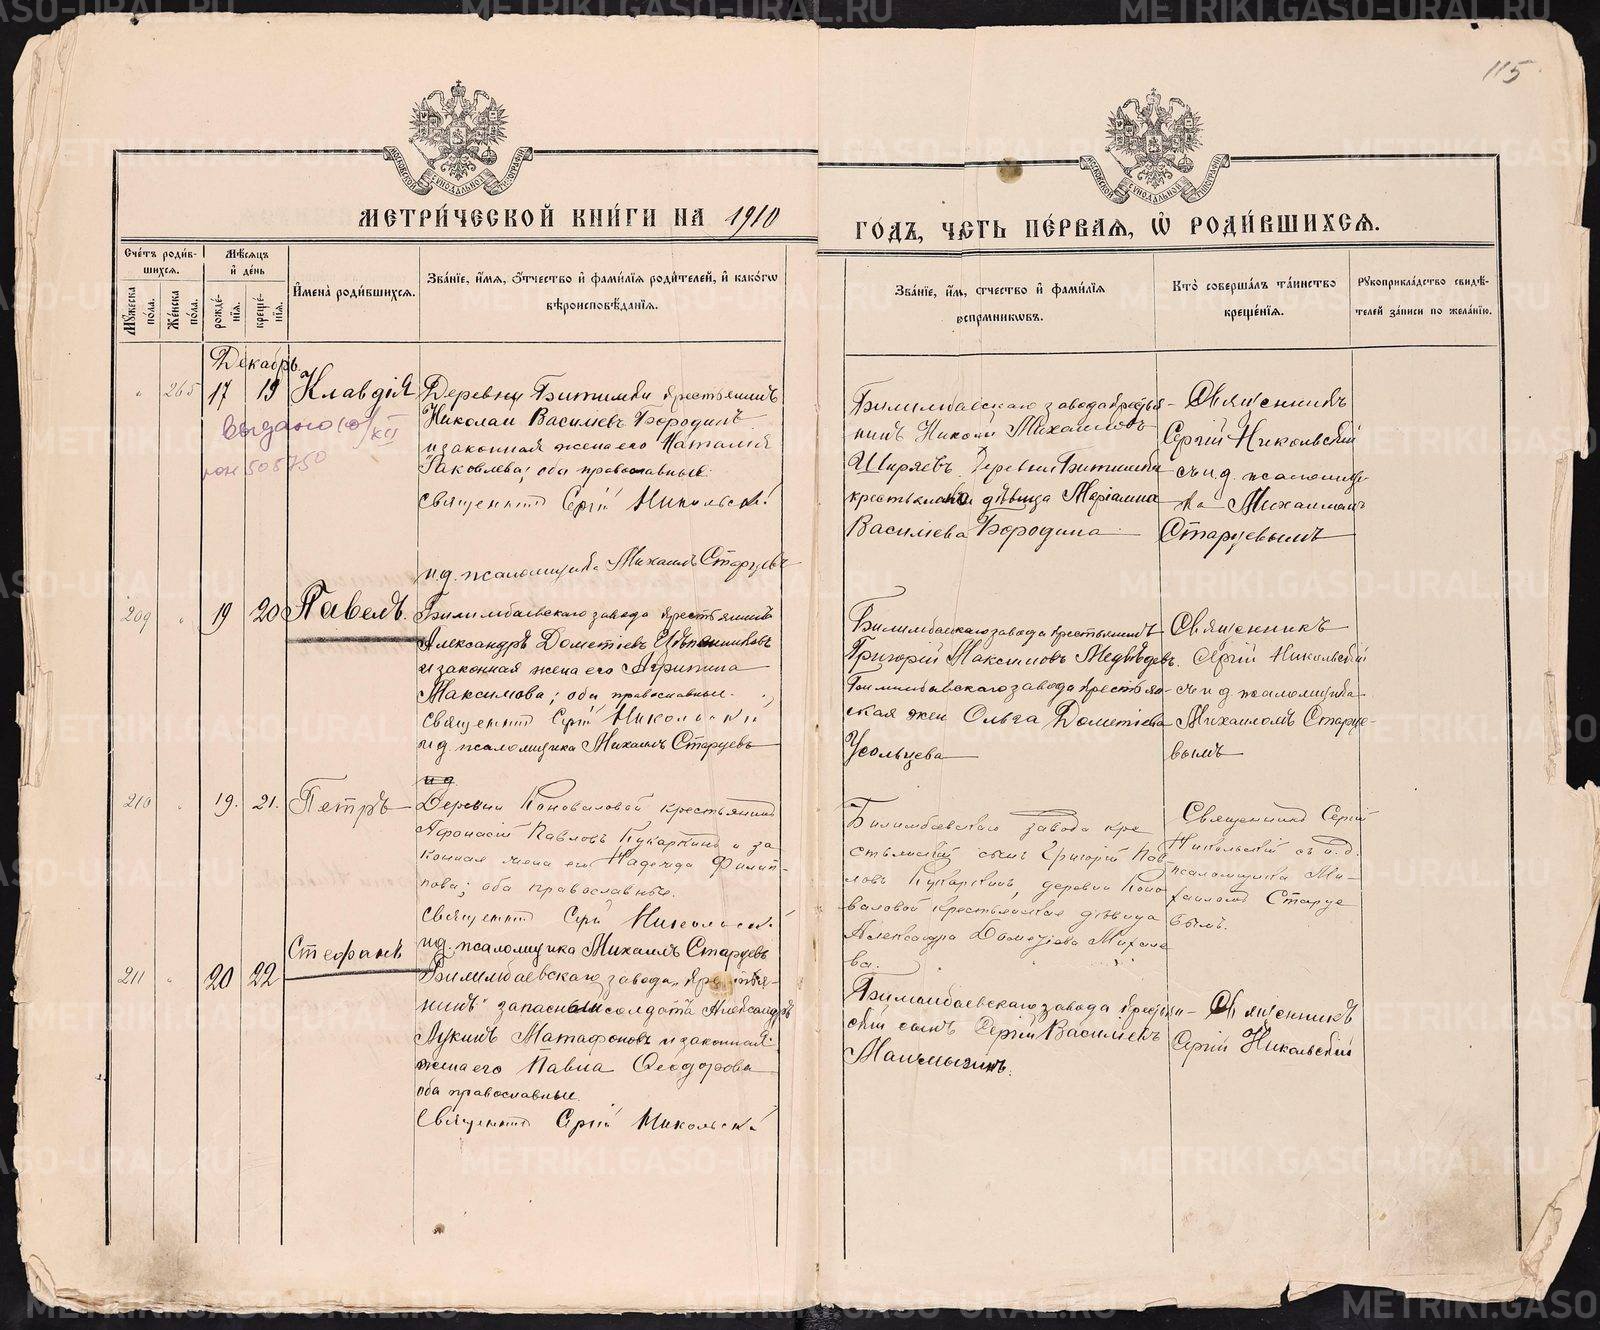 115
МОСКОВСКОЙ СѴНОДАЛЬНОЙ ТИПОГРАФІИ
МОСКОВСКОЙ СѴНОДАЛЬНОЙ ТИПОГРАФІИ
МЕТРИ́ЧЕСКОЙ КНИ́ГИ НА 1910
ГОДЪ, ЧАСТЬ ПЕ́РВАЯ, Ѡ РОДИ́ВШИХСЯ.
Сче́тъ роди́в-
шихся.
Му́жеска по́ла.
Же́нска по́ла.
Мѣ́сяцъ
и́ де́нь
рожде́-
нія.
креще́-
нія.
И҆мена̀ роди́вшихся.
Зва́ніе, и҆́мя, о҆́тчество и҆ фами́лія роди́телей, и҆ како́гѡ
вѣроисповѣ́данія.
Зва́ніе, и҆́мя, о҆́тчество и҆ фами́лія
воспріемниковъ.
Кто̀ соверша́лъ та́инство
креще́нія.
Рукоприкла́дство свидѣ́-
телей за́писи по жела́нію.
Декабрь
265 17 19 Клавдія
Деревни Битимки крестьянинъ
Николай Васильевъ Бородинъ
и законная жена его Наталія
Яковлева; оба православные.
Священникъ Сергій Никольскій
и.д. псаломщика Михаилъ Старцевъ
Выдано
505750
Билимбаевскаго завода крестья-
нинъ Николай Михайловъ
Ширяевъ, Деревни Битимки
крестьянская дѣвица Маріамна
Васильева Бородина
Священникъ
Сергій Никольскій
съ и.д. псаломщи-
ка Михаиломъ
Старцевымъ
209 19 20 Павелъ.
Билимбаевскаго завода крестьянинъ
Александръ Дометіевъ
и законная жена его Агрипина
Максимова; оба православные.
Священникъ Сергій Никольскій
и.д. псаломщика Михаилъ Старцевъ
Билимбаевскаго завода крестьянинъ
Григорій Максимовъ Медвѣдевъ.
Билимбаевскаго завода крестьян-
ская жена Ольга Дометіева
Усольцева
Священникъ
Сергій Никольскій
съ и.д. псаломщика
Михаиломъ Старце-
вымъ
210 19. 21. Петръ
и.д.
Деревни Коноваловой крестьянинъ
Афонасій Павловъ Кукаркинъ и за
конная жена его Надежда Филип-
пова; оба православные.
Священникъ Сергій Никольскій
и.д. псаломщика Михаилъ Старцевъ
Билимбаевскаго завода кре
стьянскій сынъ Григорій Пав
ловъ Кукаркинъ, деревни Коно
валовой крестьянская дѣвица
Александра Дометіева Михале
ва.
Священникъ Сергій
Никольскій съ и.д.
псаломщика Ми-
хаиломъ Старце
вымъ.
211 20 22 Стефанъ
Билимбаевскаго завода, крестья-
нинъ запасный солдатъ Александръ
Лукинъ Матафоновъ и законная
жена его Павла Ѳеодорова
оба православные.
Священникъ Сергій Никольскій
Билимбаевскаго завода крестьян-
скій сынъ Сергій Васильевъ
Священникъ
Сергій Никольскій
METRIKI.GASO-URAL.RU